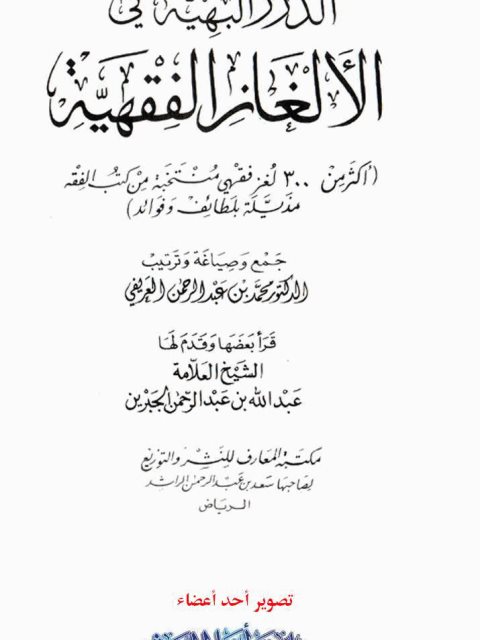 الدُّرَرُ البَهِيَّة في
الأَلغَازِ الفِقْهِيَّةِ
(أكثر مِنْ ٣٠٠ لُغز فقهي مُنْتَخَبَة مِنْ كتُب الفِقْه
مذَيَّلَة بلطَائِف وَفَوائِد)
جَمْع وَصِيَاغَة وَتَرتيب
الدكتور محمَّد بن عَبد الرحمٰن العَريفي
قَرَأ بَعضَهَا وَقَدَمَ لهَا
الشَّيْخ العَلَّامَة
عَبدالله بن عَبدالرَّحمٰن الجبْرين
مكتبَة المعَارف للنَّشْر وَالتوزيع
لصَاحبهَا سَعد بن عَبْد الرحمٰن الراشِد
الريَاض
تصوير أحد أعضاء